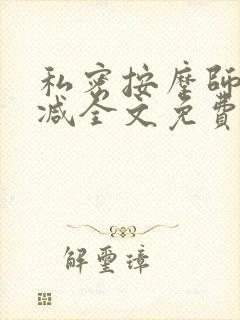 私密按摩師
減全文免費
解璽璋